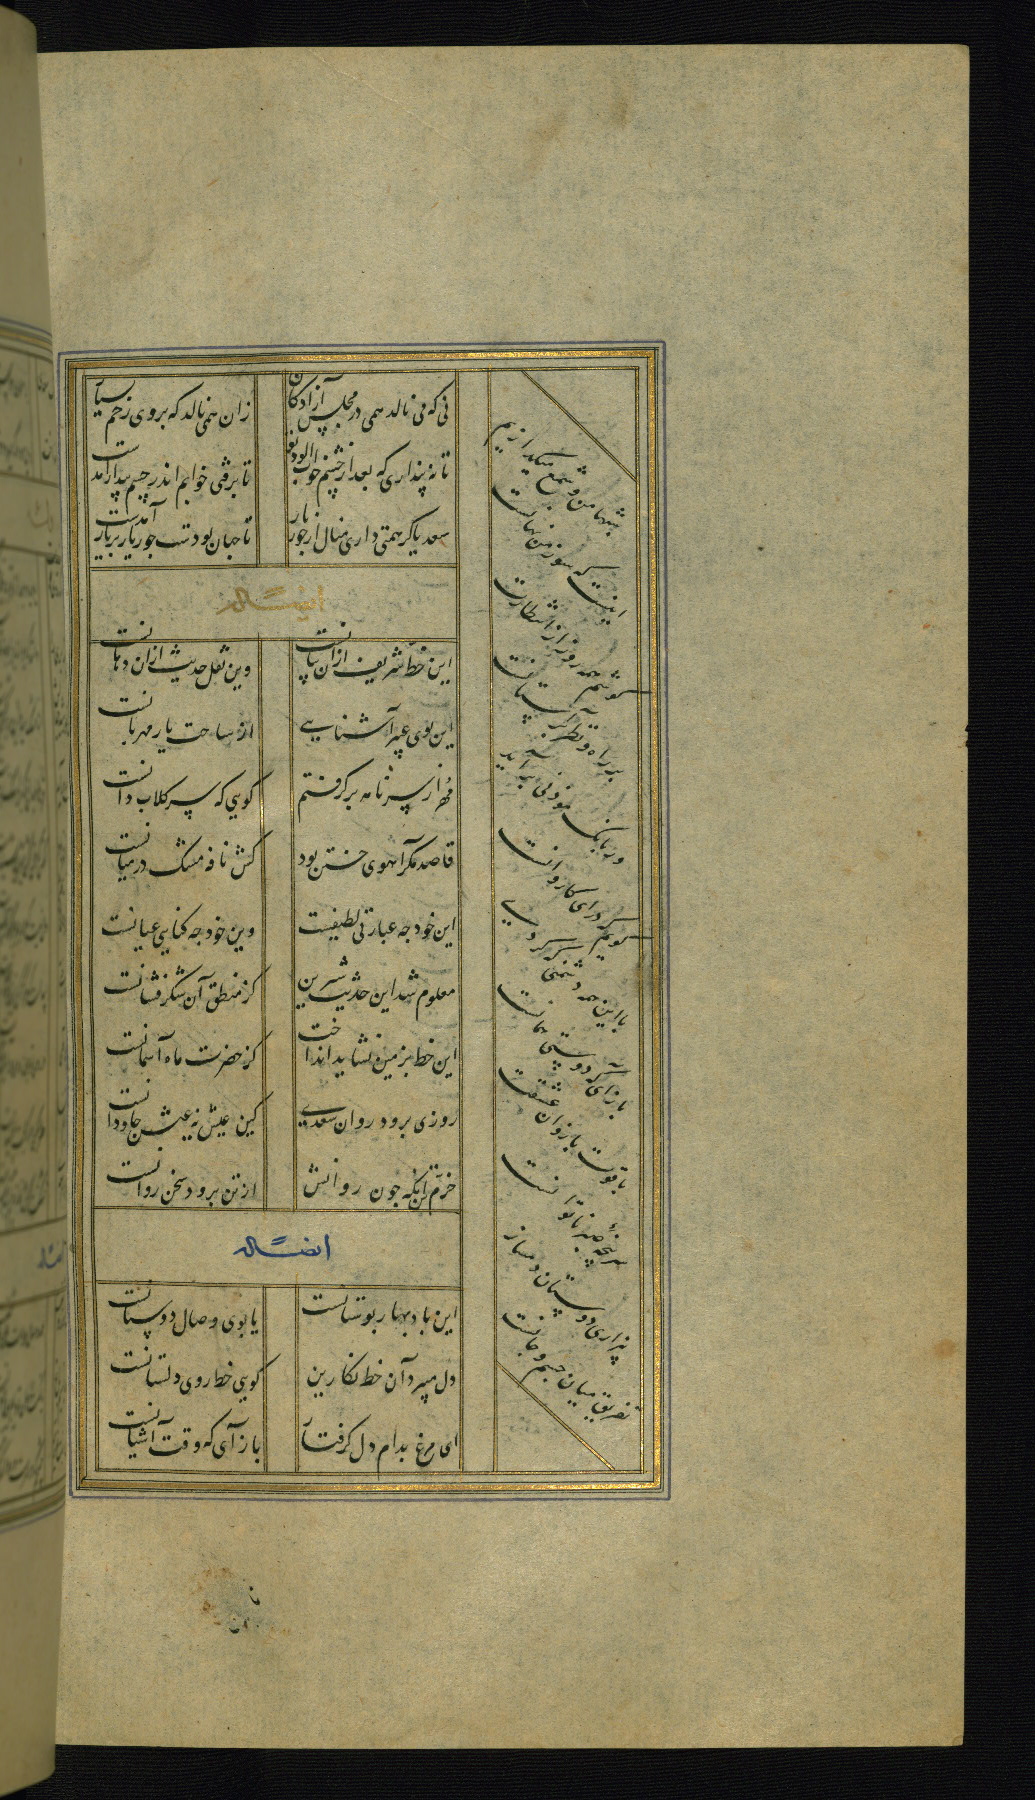 نی که می نالد همی در مجلس آزادگان
زان همی نالد که بروی زخم بسیار
تا نه پنداری که بعد از چشم خواب آلود تو
تا برفتی خوابم اندر چشم بیدار آمدست
سعدیا گر همتی داری منال از جور یار
تا جهان بودست جور یار بر یار آمدست
ایضاً له
این خط شریف از آن بنانست
وین نقل حدیث از آن دهانست
این بوی عبیر آشنایی
از ساحت یار مهربانست
مهر از سر نامه برگرفتم
گویی که سر گلاب دانست
قاصد مگر آهوی ختن بود
کش نافه مشک در میانست
این خود چه عبارتی لطیفست
وین خود چه کنایی عیانست
معلوم شد این حدیث شیرین
کز منطق آن شکرفشانست
این خط بزمین نشاید انداخت
کز حضرت ماه آسمانست
روزی برود روان سعدی
کین عیش نه عیش جاودانست
خرم تن آنکه چون روانش
از تن برود سخن روانست
ایضاً له
این باد بهار بوستانست
یا بوی وصال دوستانست
دل میبرد آن خط نگارین
گویی خط روی دلستانست
ای مرغ بدام دل گرفتار
باز آی که وقت آشیانست
شبها من و شمع میگدازیم
اینست که سوز من نهانست
گوشم همه روز از انتظارت
بر راه و نظر بر آستانست
ور بانگ موذنی برآید
گویم که درای کاروانست
با این همه دشمنی که کردی
باز آی که دوستی همانست
با قوت بازوان عشقت
سرپنجه صبر ناتوانست
بیزاری دوستان دمساز
تفریق میان جسم و جانست